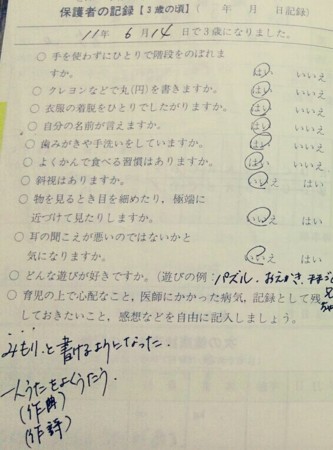 保護者の記録【3歳の頃】(　　年　　月　　日記録)
11年 6月 14日で3歳になりました。
○ 手を使わずにひとりで階段をのぼれますか。 はい いいえ
○ クレヨンなどで丸(円)を書きますか。 はい いいえ
○ 衣服の着脱をひとりでしたがりますか。 はい いいえ
○ 自分の名前が言えますか。 はい いいえ
○ 歯みがきや手洗いをしていますか。 はい いいえ
○ よくかんで食べる習慣はありますか。 はい いいえ
○ 斜視はありますか。 いいえ はい
○ 物を見るとき目を細めたり、極端に
近づけて見たりしますか。 いいえ はい
○ 耳の聞こえが悪いのではないかと
気になりますか。 いいえ はい
○ どんな遊びが好きですか。(遊びの例:パズル、おえかき、
○ 育児の上で心配なこと、医師にかかった病気、記録として残
しておきたいこと、感想などを自由に記入しましょう。
みもり、と書けるようになった。
一人うたをよくうたう。
(作曲)
(作詩)